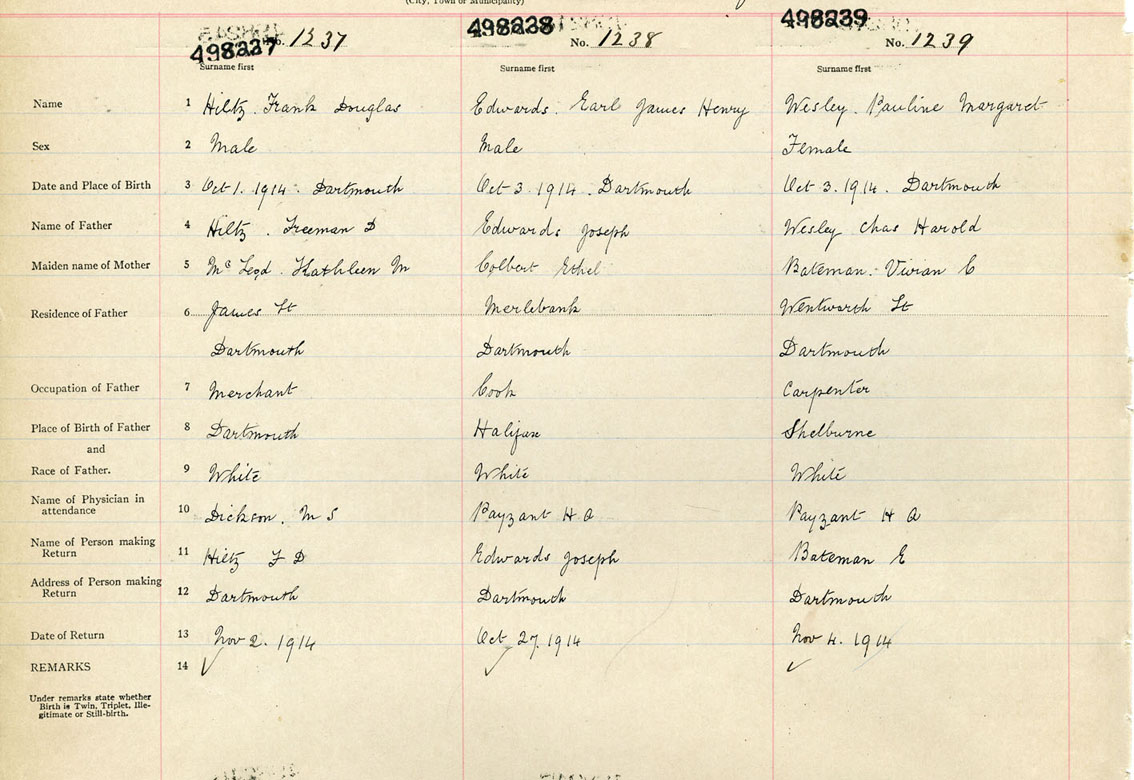 (City, Town or Municipality)
498227 No. 1237 498228 No. 1238 498239 No. 1239
Surname first Surname first Surname first
Name 1 Hiltz. Frank Douglas Edwards. Earl James Henry Wesley. Pauline Margaret
Sex 2 Male Male Female
Date and Place of Birth 3 Oct 1. 1914. Dartmouth Oct 3. 1914. Dartmouth Oct 3. 1914. Dartmouth
Name of Father 4 Hiltz. Freeman D Edwards Joseph Wesley Chas Harold
Maiden name of Mother 5 Kathleen M Colbert Ethel Bateman. Vivian C
Residence of Father 6 James St Merlebank Wentworth St
Dartmouth Dartmouth Dartmouth
Occupation of Father 7 Merchant Cook Carpenter
Place of Birth of Father 8 Dartmouth Halifax Shelburne
and
Race of Father. 9 White White White
Name of Physician in
attendance 10 Dickson. M S Payzant H A Payzant H A
Name of Person making
Return 11 Hiltz F D Edwards Joseph Bateman E
Address of Person making
Return 12 Dartmouth Dartmouth Dartmouth
Date of Return 13 Nov 2. 1914 Oct 27, 1914 Nov 4. 1914
REMARKS 14 ✓ ✓ ✓
Under remarks state whether
Birth is Twin, Triplet, Ille-
gitimate or Still-birth.